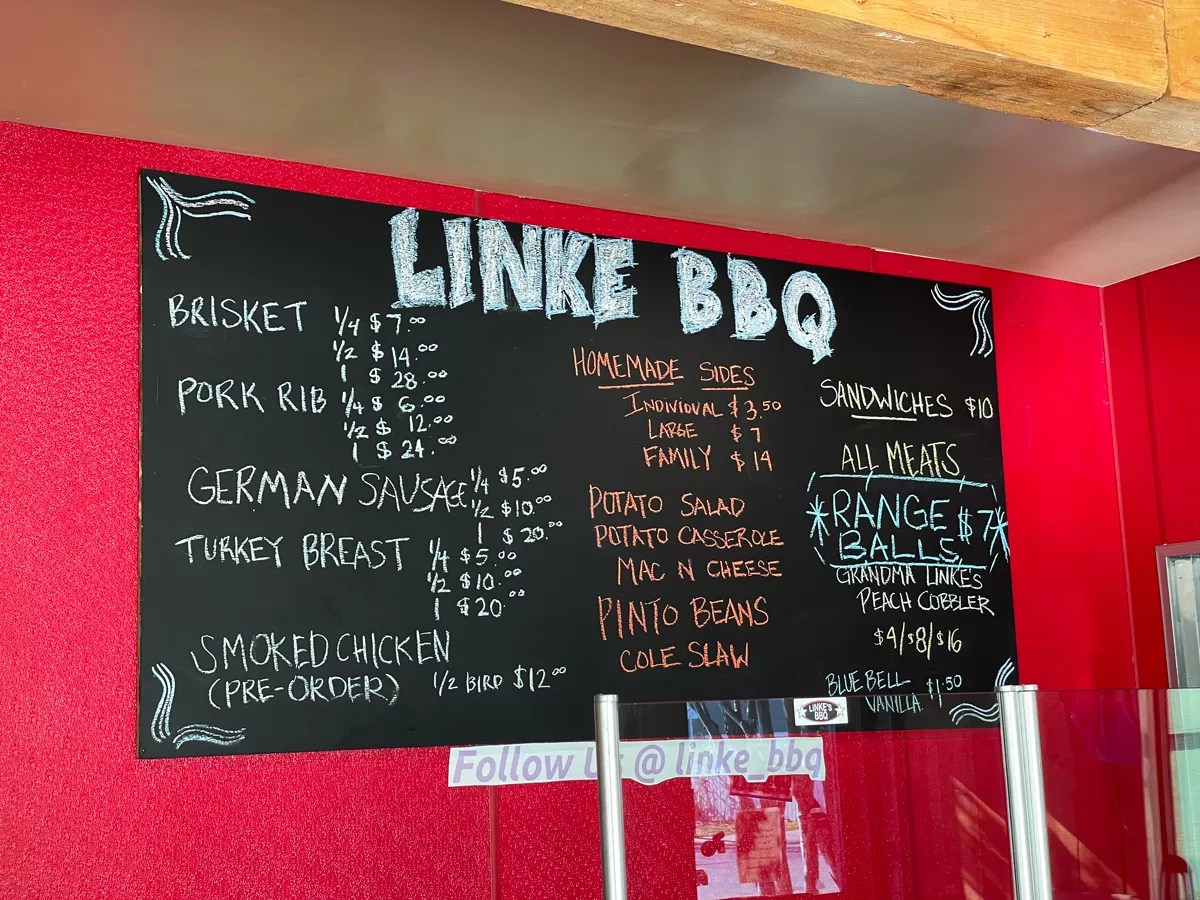 LINKE BBQ
BRISKET 1/4 $7.00
1/2 $14.00
1 $28.00
PORK RIB 1/4 $6.00
1/2 $12.00
1 $24.00
GERMAN SAUSAGE 1/4 $5.00
1/2 $10.00
1 $20.00
TURKEY BREAST 1/4 $5.00
1/2 $10.00
1 $20.00
SMOKED CHICKEN
(PRE-ORDER) 1/2 BIRD $12.00
HOMEMADE SIDES
INDIVIDUAL $3.50
LARGE $7
FAMILY $14
POTATO SALAD
POTATO CASSEROLE
MAC N CHEESE
PINTO BEANS
COLE SLAW
SANDWICHES $10
ALL MEATS
*RANGE $7*
BALLS
GRANDMA LINKE'S
PEACH COBBLER
$4/$8/$16
BLUE BELL
VANILLA $1.50
LINKE'S
BBQ
Follow Us @ linke_bbq